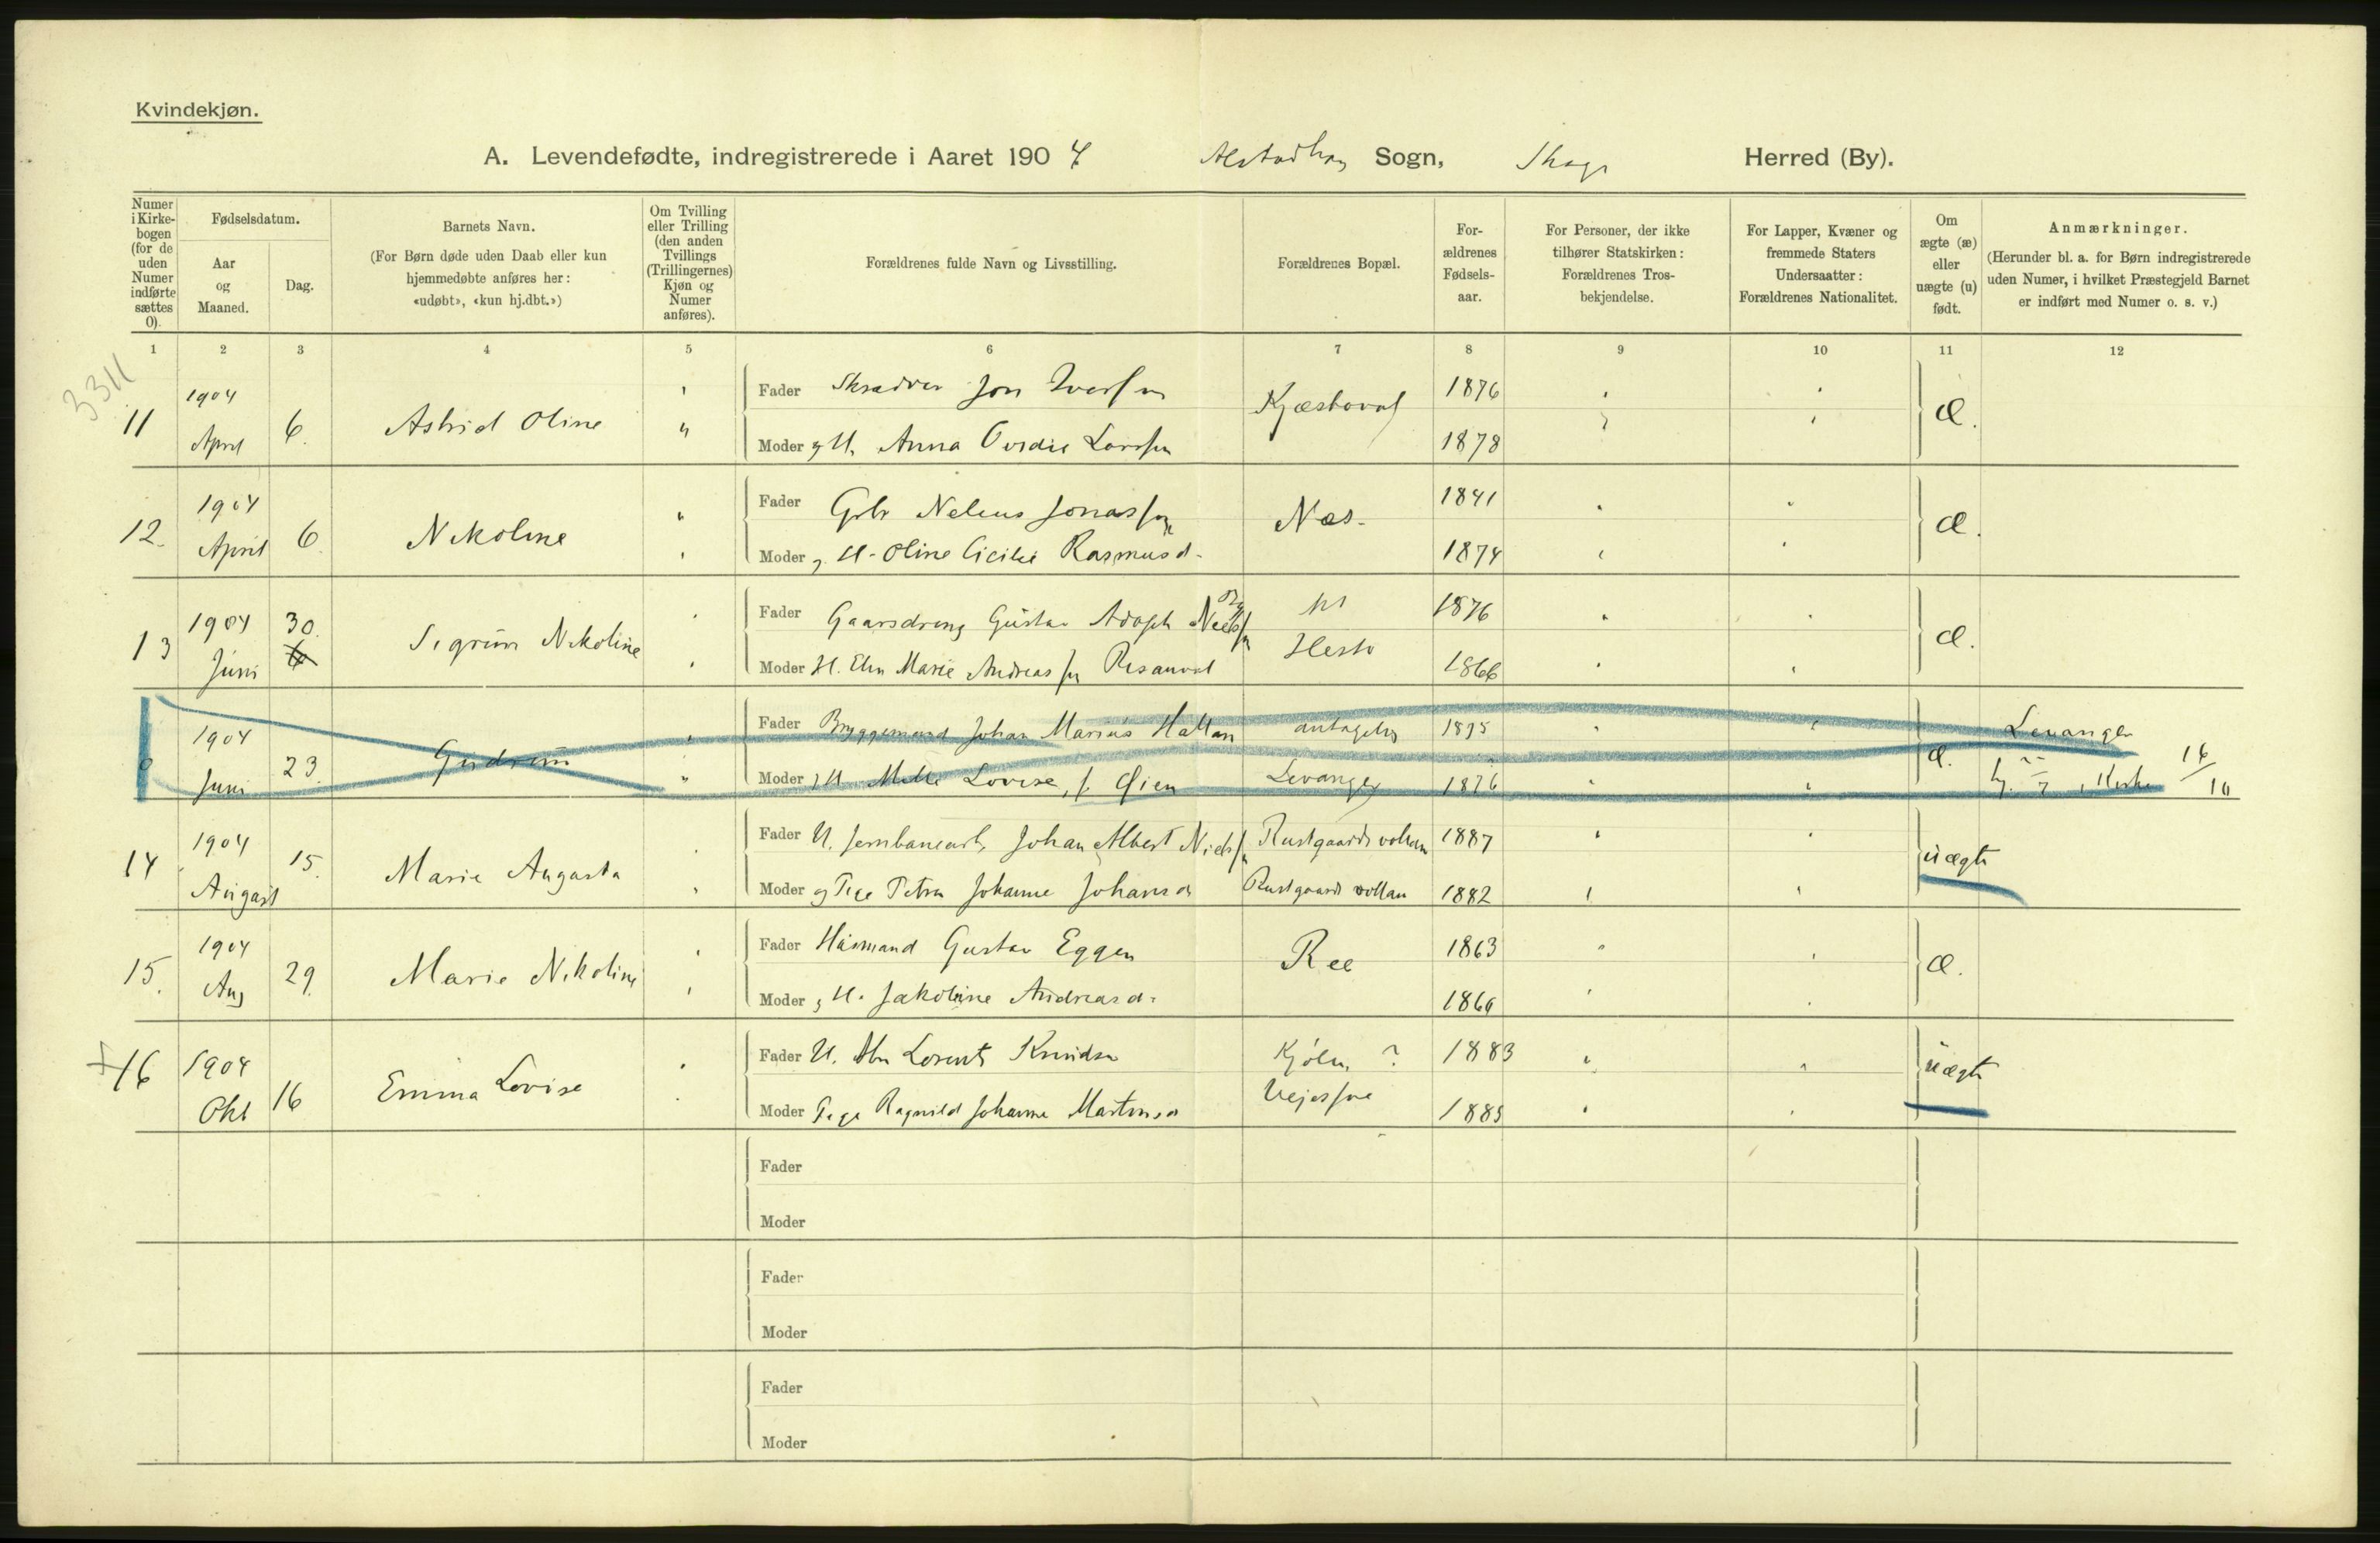 Kvindekjøn.
A. Levendefødte, indregistrerede i Aaret 1904 Alstadhaug Sogn, Skogn Herred (By).
Numer i Kirkebogen (for de uden Numer indførte sættes 0).
Fødselsdatum.
Aar og Maaned.
Dag.
Barnets Navn.
(For Børn døde uden Daab eller kun hjemmedøbte anføres her: «udøbt», «kun hj.dbt.»)
Om Tvilling eller Trilling (den anden Tvillings (Trillingernes) Kjøn og Numer anføres).
Forældrenes fulde Navn og Livsstilling.
Forældrenes Bopæl.
Forældrenes Fødselsaar.
For Personer, der ikke tilhører Statskirken: Forældrenes Trosbekjendelse.
For Lapper, Kvæner og fremmede Staters Undersaatter: Forældrenes Nationalitet.
Om ægte (æ) eller uægte (u) født.
Anmærkninger.
(Herunder bl. a. for Børn indregistrerede uden Numer, i hvilket Præstegjeld Barnet er indført med Numer o. s. v.)
1 2 3 4 5 6 7 8 9 10 11 12
3311
11 1904 April 6. Astrid Oline
Fader Skrædder Jon Iversen 1876 æ.
Moder og H. Anna Larssen 1878
12. 1904 April 6. Nikoline
Fader Gbr Nelius Jonassen Næs. 1841 æ.
Moder og H. Oline Cicilie Rasmusd. 1874
13 1904 Juni 30. 6 Sigrun Nikoline
Fader Gaardsdreng Gustav Adolph 1876 æ.
Moder H. Elen Marie Andreassen 1866
0 1904 Juni 23. Gudrun
Fader Byggemand Johan Marius Hallan antagelig 1875 Levanger
Moder og H. Lovise, f. Øien Levanger 1876 æ. Kirke 16/10
14 1904 August 15. Marie Augusta
Fader U. Jernbanearb. Johan Albert Nielssen Rustgaardsvollan 1887 uægte
Moder og Pige Petra Johanne Johansd Rustgaardsvollan 1882
15. 1904 Aug 29. Marie Nikoline
Fader Husmand Gustav Eggen Ree 1863 æ.
Moder og H. Jakobine Andreasd. 1860
16 1904 Okt 16 Emma Lovise
Fader U. Lorents Knudsen ? 1883 uægte
Moder Pige Ragnild Johanne Martinsd 1885
Fader
Moder
Fader
Moder
Fader
Moder